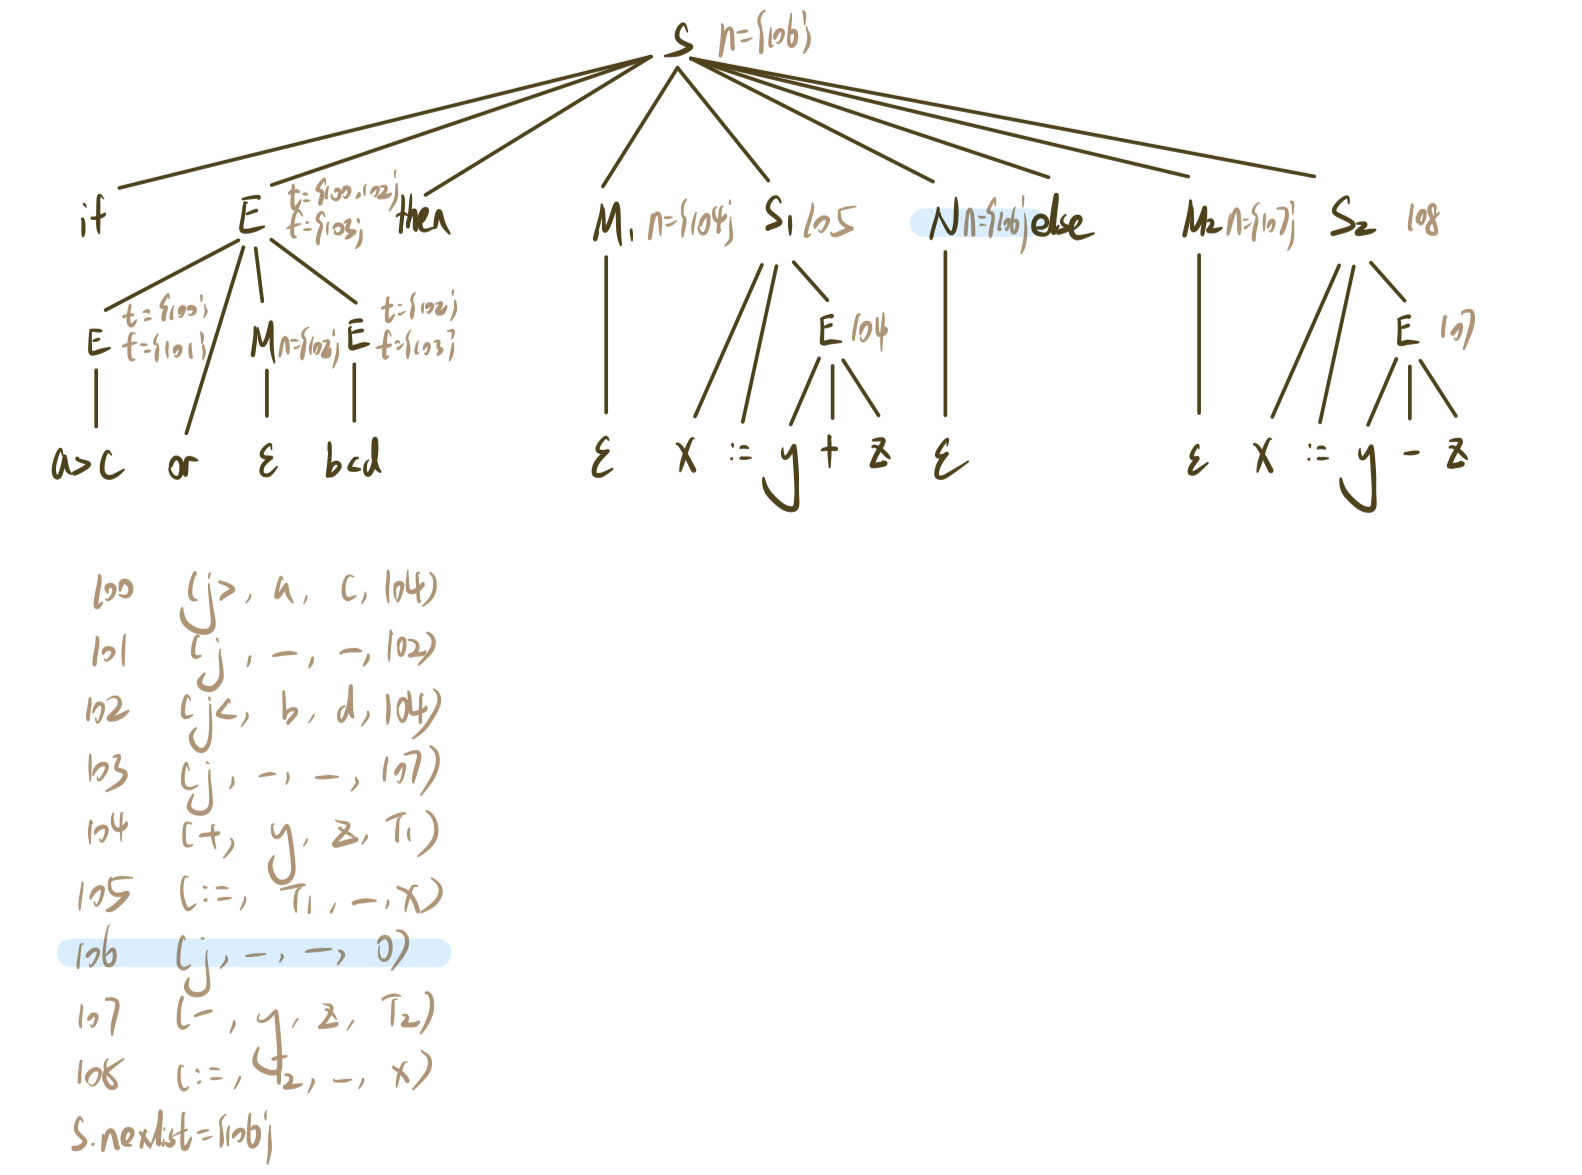 S n={106}
if E t={100,102} f={103} then M1 n={104} S1 105 N n={106} else M2 n={107} S2 108
E t={100} f={101} M n={102} E t={102} f={103} E 104 E 107
a>c or ε b<d ε x := y + z ε ε x := y - z
100 (j>, a, c, 104)
101 (j, -, -, 102)
102 (j<, b, d, 104)
103 (j, -, -, 107)
104 (+, y, z, T1)
105 (:=, T1, -, x)
106 (j, -, -, 0)
107 (-, y, z, T2)
108 (:=, T2, -, x)
S.nexlist={106}